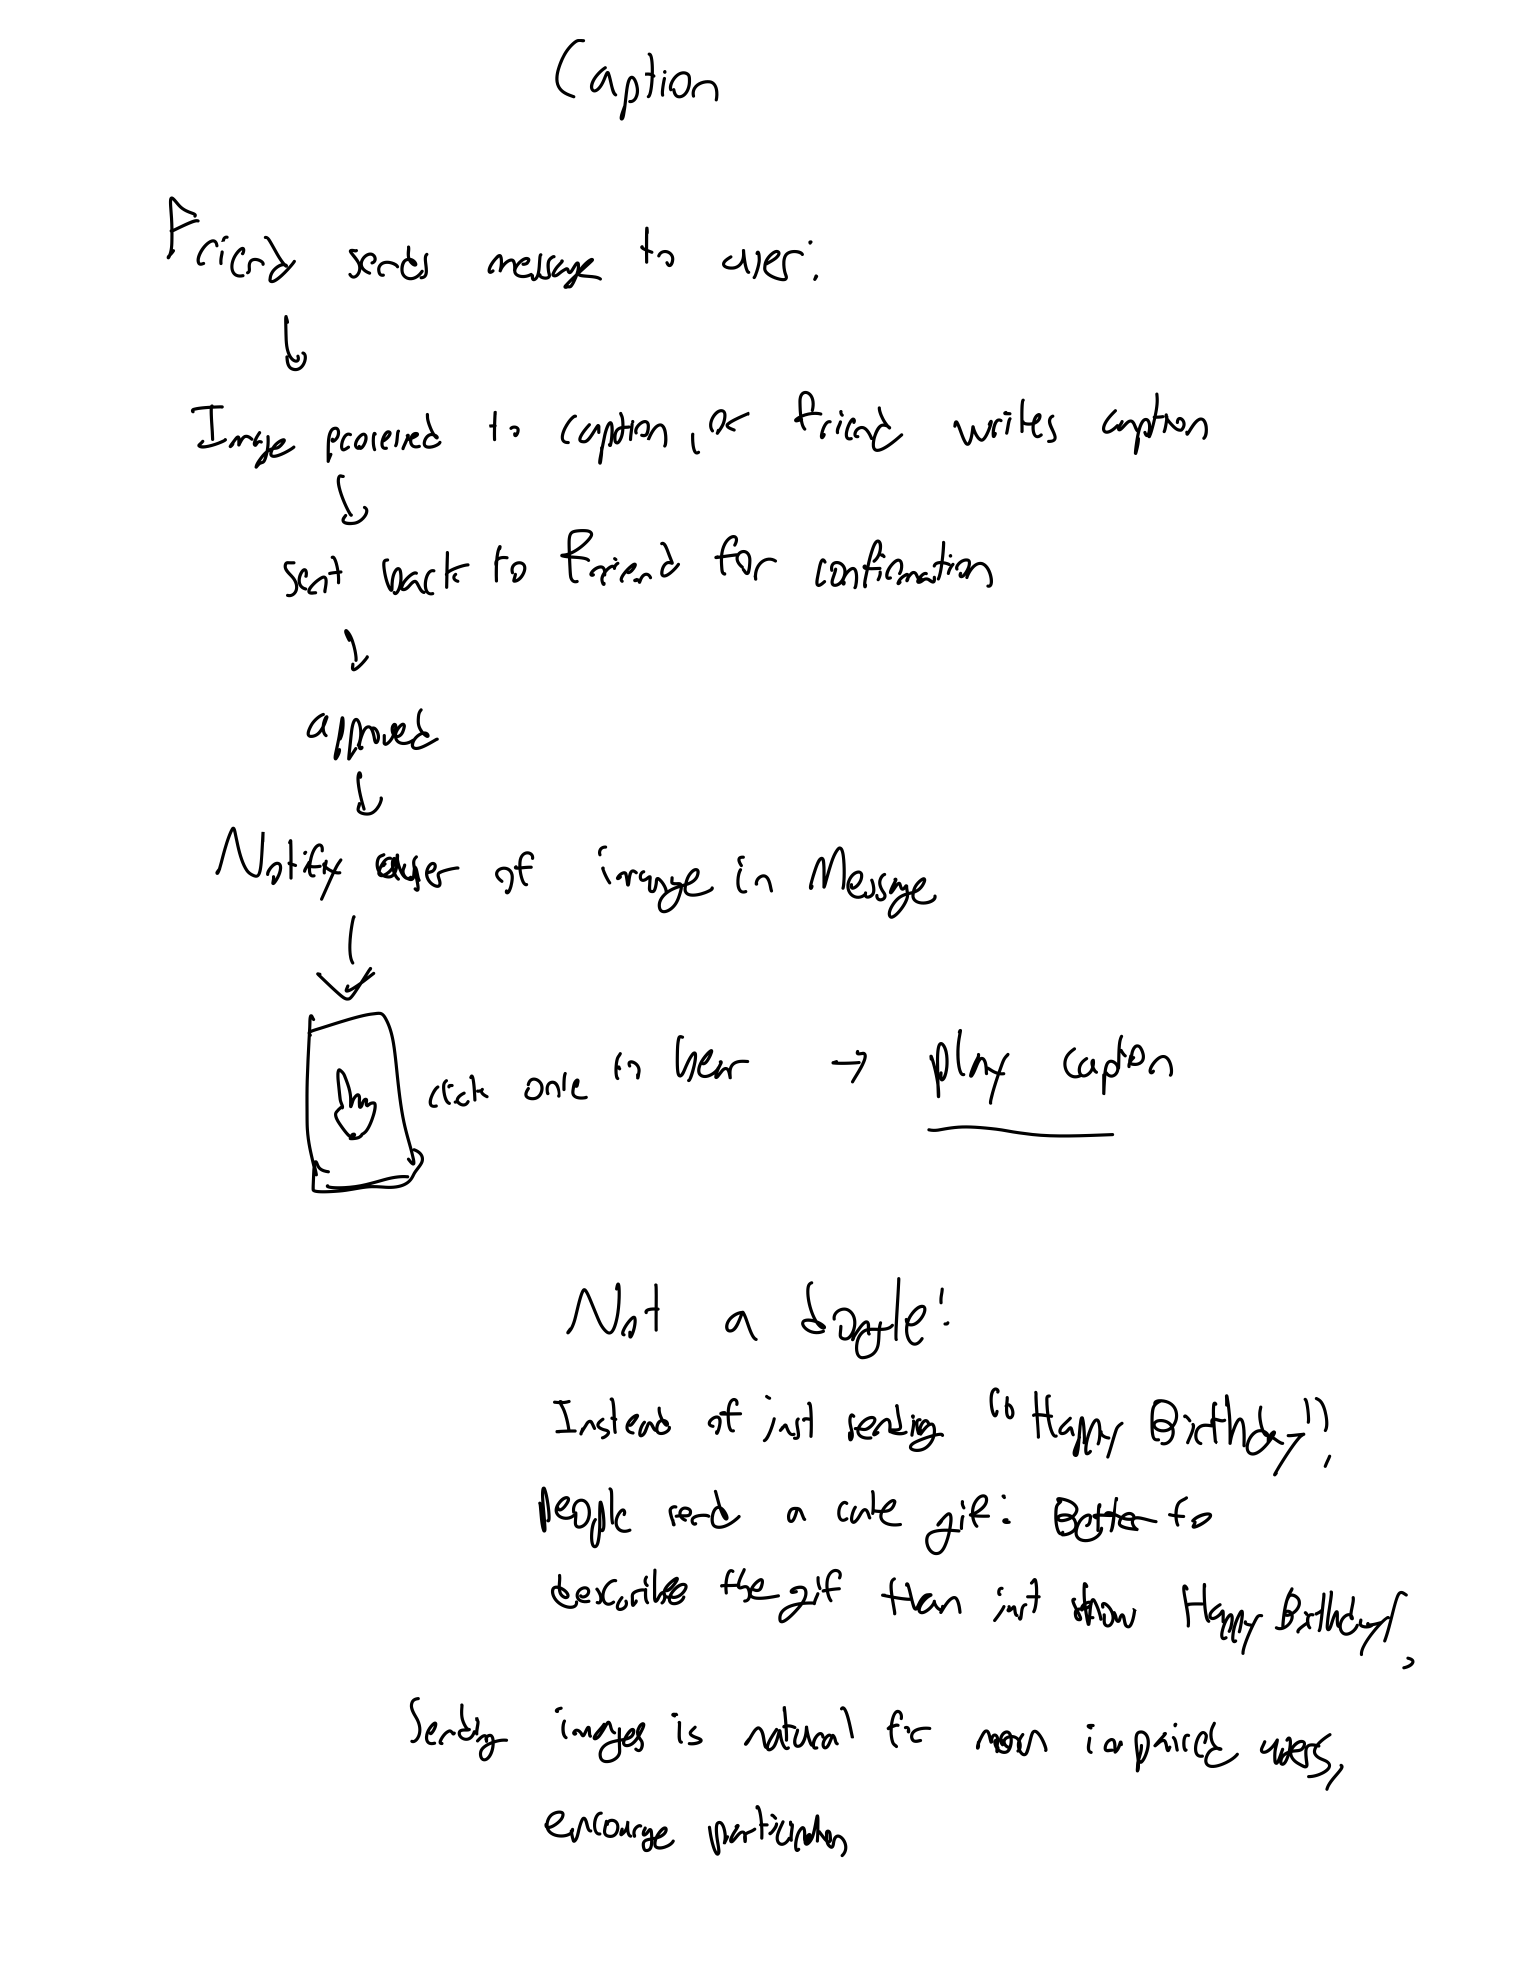 Caption
Friend sends message to user:
Image processed to caption, or friend writes caption
sent back to friend for confirmation
approved
Notify user of image in Message
click once to hear → play caption
Not a
Instead of just sending "Happy Birthday",
people send a cute gif: Better to
describe the gif than just show Happy Birthday!,
Sending images is natural for non impaired users,
encourage participation